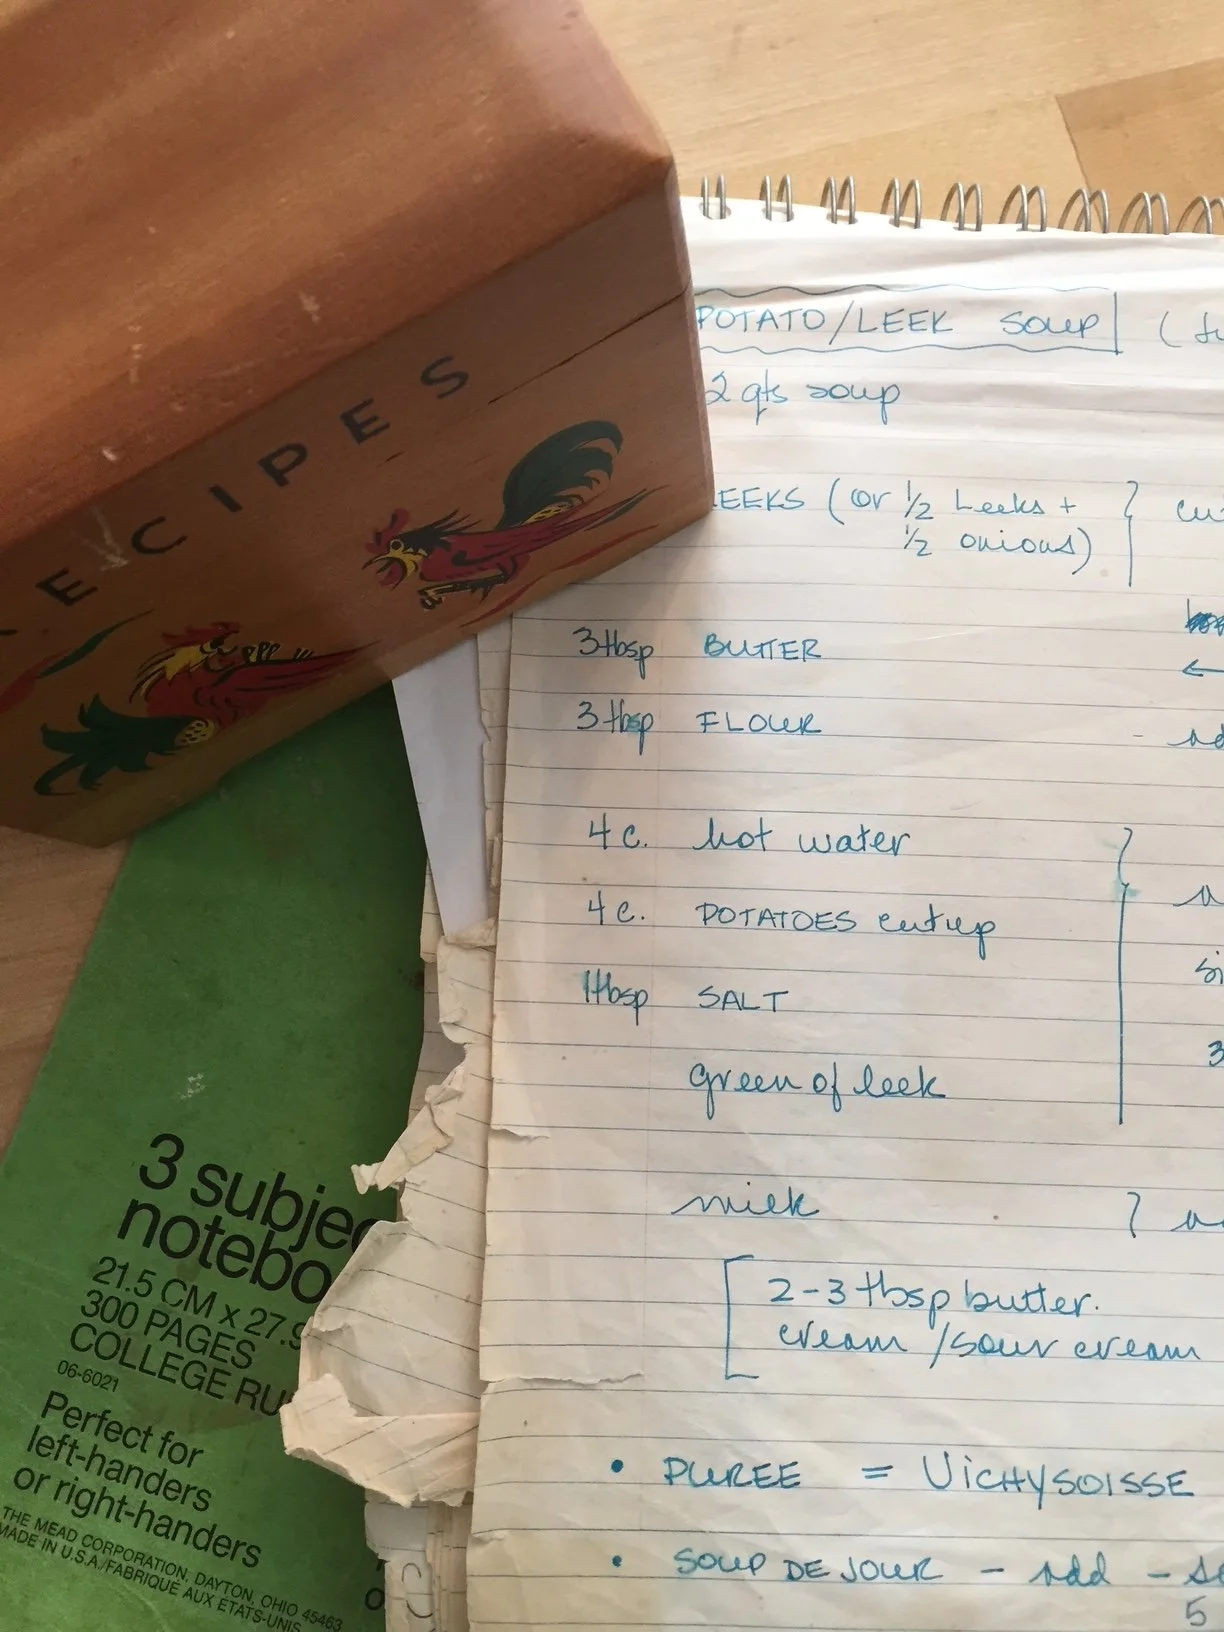 ECIPES
POTATO/LEEK SOUP
2 qts soup
LEEKS (or 1/2 Leeks +
1/2 onions)
3 tbsp BUTTER
3 tbsp FLOUR
4 c. hot water
4 c. POTATOES cut up
1 tbsp SALT
green of leek
milk
2-3 tbsp butter.
cream/sour cream
• PUREE = VICHYSOISSE
• SOUP DE JOUR - add -
5
3 subjec
notebo
21.5 CM x 27.9
300 PAGES
COLLEGE RU
06-6021
Perfect for
left-handers
or right-handers
THE MEAD CORPORATION, DAYTON, OHIO 45463
MADE IN U.S.A./FABRIQUÉ AUX ETATS-UNIS